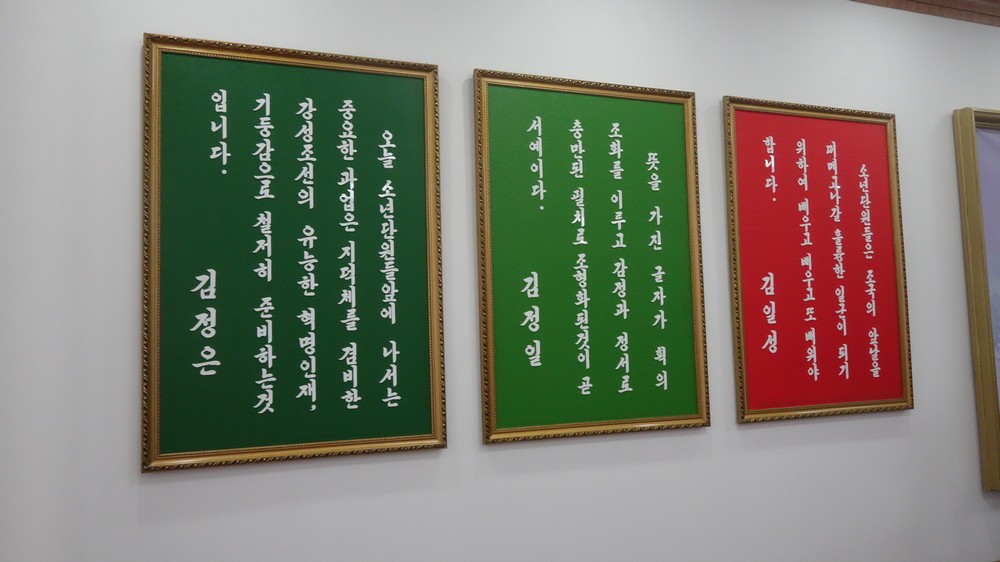 소년단원들은 조국의 앞날을
떠메고나갈 훌륭한 일군이 되기
위하여 배우고 배우고 또 배워야
합니다.
김일성
뜻을 가진 글자가 획의
조화를 이루고 감정과 정서로
충만된 필치로 조형화된것이 곧
서예이다.
김정일
오늘 소년단원들앞에 나서는
중요한 과업은 지덕체를 겸비한
강성조선의 유능한 혁명인재,
기둥감으로 철저히 준비하는것
입니다.
김정은